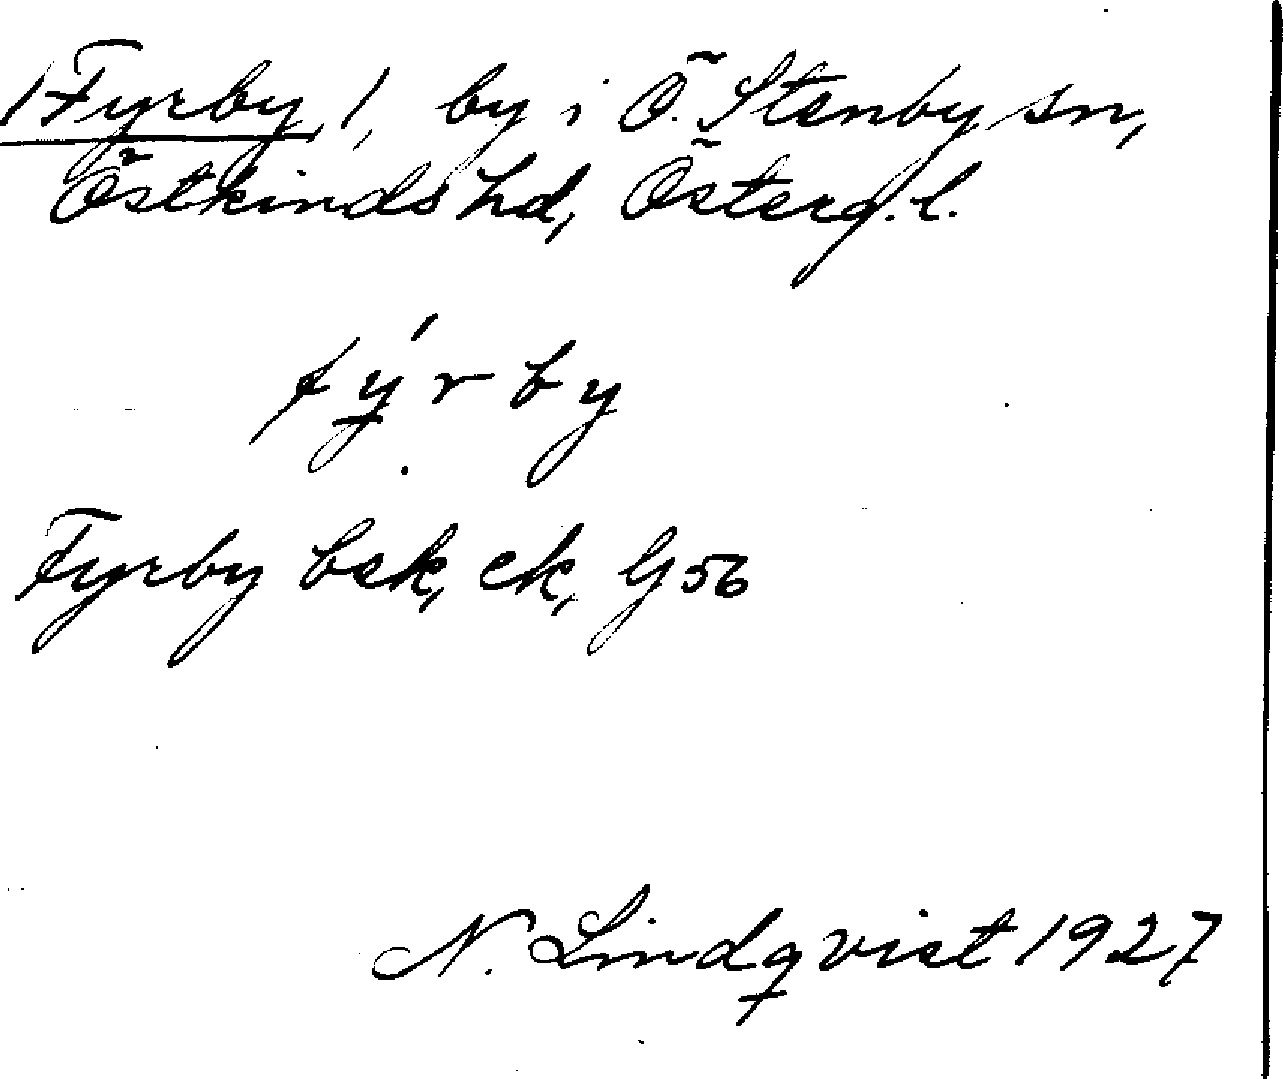 /Fyrby/, by i Ö. Stenby sn,
Östkinds hd, Österg. l.
fýrby
Fyrby bek, ek, G 56
N. Lindqvist 1927